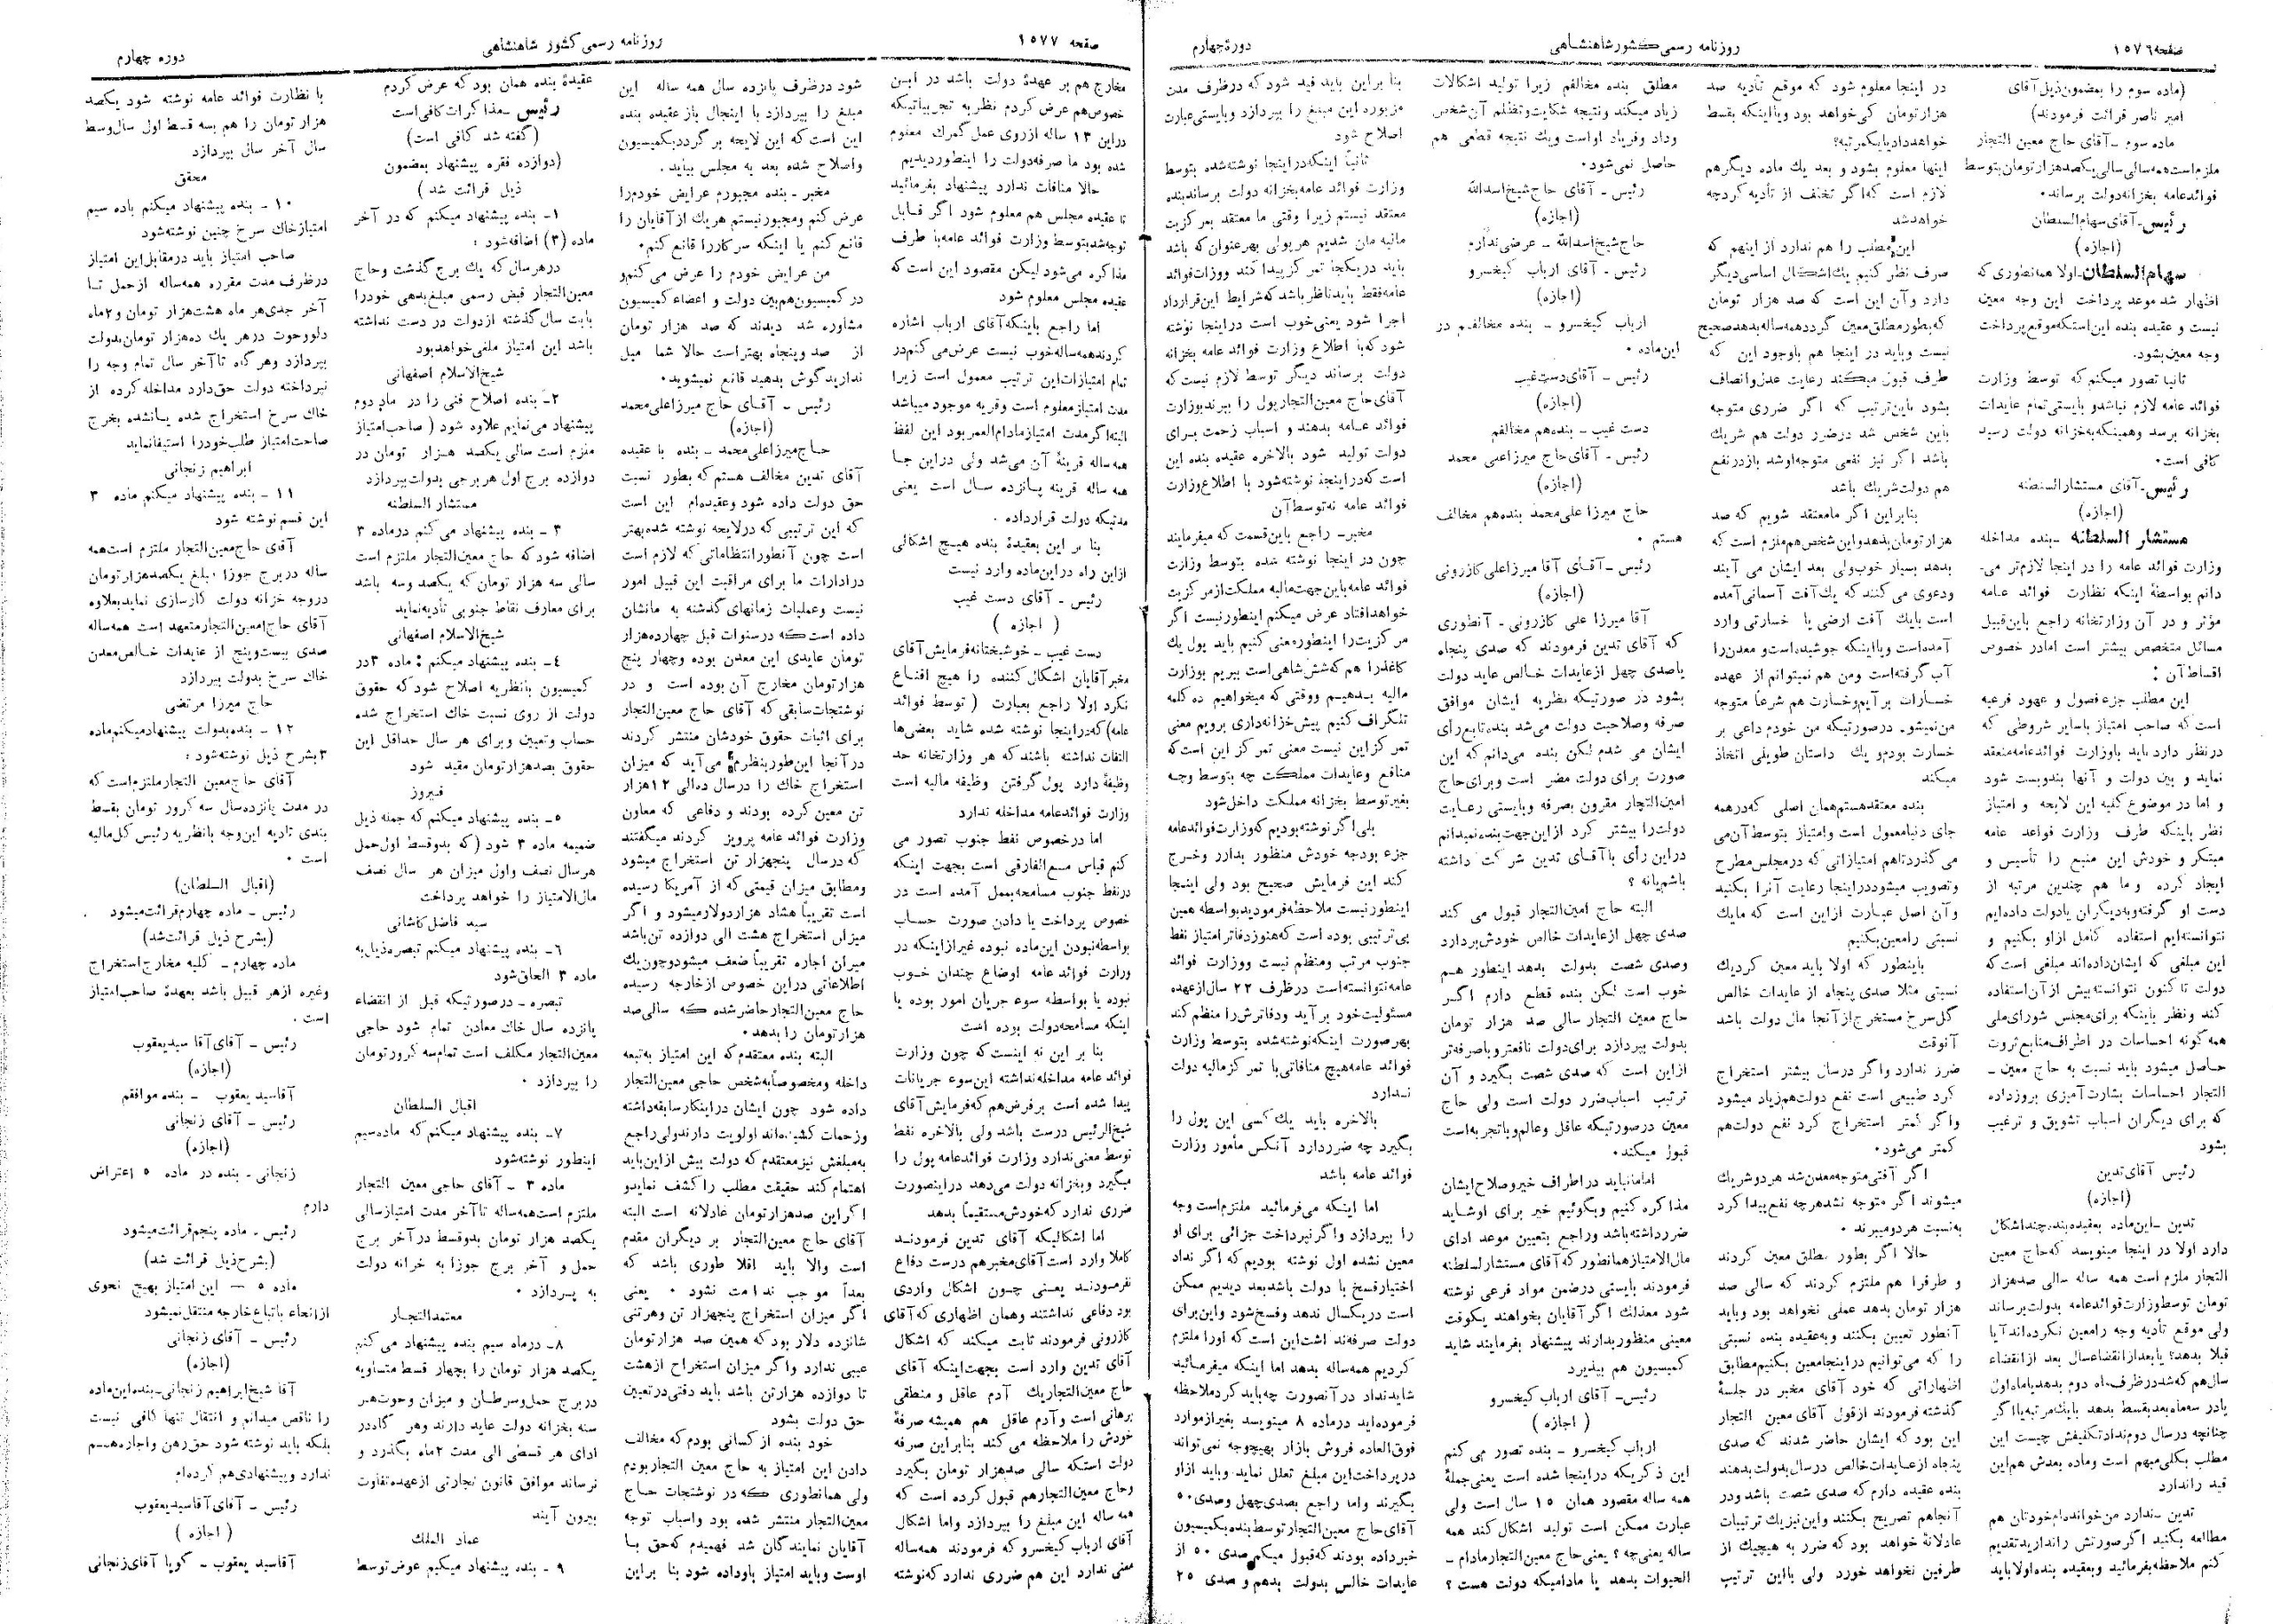 صفحه ۱۵۷۶
روزنامه رسمی کشور شاهنشاهی
دوره چهارم
(ماده سوم را بمضمون ذیل آقای
امیر ناصر قرائت فرمودند)
ماده سوم ـ آقای حاج معین التجار
ملزم است همه سالی سالی یکصد هزار تومان بتوسط
فوائد عامه بخزانه دولت برساند.
رئیس ـ آقای سهام السلطان
(اجازه)
سهام السلطان ـ اولا همه نطوری که
اظهار شد موعد پرداخت این وجه معین
نیست و عقیده بنده این استکه موقع پرداخت
وجه معین بشود.
ثانیا تصور میکنم که توسط وزارت
فوائد عامه لازم نباشد و بایستی تمام عایدات
بخزانه برسد و همینکه به خزانه دولت رسید
کافی است.
رئیس ـ آقای مستشار السلطنه
(اجازه)
مستشار السلطنه ـ بنده مداخله
وزارت فوائد عامه را در اینجا لازم تر می-
دانم بواسطهٔ اینکه نظارت فوائد عامه
مؤثر و در آن وزارتخانه راجع باین قبیل
مسائل متخصص بیشتر است اما در خصوص
اقساط آن :
این مطلب جزء فصول و عهود فرعیه
است که صاحب امتیاز باسایر شروطی که
در نظر دارد باید باوزارت فوائد عامه منعقد
نماید و بین دولت و آنها بندوبست شود
و اما در موضوع کلیه این لایحه و امتیاز
نظر باینکه طرف وزارت فواعد عامه
مبتکر و خودش این منبع را تأسیس و
ایجاد کرده و ما هم چندین مرتبه از
دست او گرفته و به دیگران یا دولت داده ایم
نتوانسته ایم استفاده کامل از او بکنیم و
این مبلغی که ایشان داده اند مبلغی است که
دولت تا کنون نتوانسته بیش از آن استفاده
کند و نظر باینکه برای مجلس شورای ملی
همه گونه احساسات در اطراف منابع ثروت
حاصل میشود باید نسبت به حاج معین ـ
التجار احساسات بشارت آمیزی بروز داده
که برای دیگران اسباب تشویق و ترغیب
بشود
رئیس آقای تدین
(اجازه)
تدین ـ این ماده بعقیده بنده چند اشکال
دارد اولا در اینجا مینویسد که حاج معین
التجار ملزم است همه ساله سالی صد هزار
تومان توسط وزارت فوائد عامه بدولت برساند
ولی موقع تأدیه وجه را معین نکرده اند آیا
قبلا بدهد؟ یا بعد از انقضاء سال بعد از انقضاء
سال هم که شد در ظرف ماه دوم بدهد یا ماه اول
یا در سه ماه بعد بقسط بدهد یا یک مرتبه یا اگر
چنانچه در سال دوم نداد تکلیفش چیست این
مطلب بکلی مبهم است و ماده بعدش هم این
قید را ندارد
تدین ـ ندارد من خوانده ام خودتان هم
مطالعه بکنید اگر صورتش را ندارید تقدیم
کنم ملاحظه بفرمائید و بعقیده بنده اولا باید
در اینجا معلوم شود که موقع تأدیه صد
هزار تومان کی خواهد بود و یا اینکه بقسط
خواهد داد یا یکمرتبه؟
اینها معلوم بشود و بعد یك ماده دیگر هم
لازم است که اگر تخلف از تأدیه کرد چه
خواهد شد
این مطلب را هم ندارد از اینهم که
صرف نظر کنیم یك اشکال اساسی دیگر
دارد و آن این است که صد هزار تومان
که بطور مطلق معین گردد همه ساله بدهد صحیح
نیست و باید در اینجا هم باوجود این که
طرف قبول میکند رعایت عدل و انصاف
بشود باین ترتیب که اگر ضرری متوجه
باین شخص شد در ضرر دولت هم شریك
باشد اگر نیز نفعی متوجه او شد باز در نفع
هم دولت شریك باشد
بنابر این اگر ما معتقد شویم که صد
هزار تومان بدهد و این شخص هم ملزم است که
بدهد بسیار خوب ولی بعد ایشان می آیند
و دعوی می کنند که یك آفت آسمانی آمده
است یا یك آفت ارضی یا خسارتی وارد
آمده است و یا اینکه جوشیده است و معدن را
آب گرفته است و من هم نمیتوانم از عهده
خسارات بر آیم و خسارت هم شرعاً متوجه
من نمیشود. در صورتیکه من خودم داعی بر
خسارت بودم و یك داستان طویلی اتخاذ
میکند
بنده معتقد هستم همان اصلی که در همه
جای دنیا معمول است و امتیاز بتوسط آن می
گذرد تا هم امتیازاتی که در مجلس مطرح
و تصویب میشود در اینجا رعایت آنرا بکنید
و آن اصل عبارت از این است که ما یك
نسبتی را معین بکنیم
باینطور که اولا باید معین کرد یك
نسبتی مثلا صدی پنجاه از عایدات خالص
گل سرخ مستخرج از آنجا مال دولت باشد
آنوقت
ضرر ندارد و اگر در سال بیشتر استخراج
کرد طبیعی است نفع دولت هم زیاد میشود
و اگر کمتر استخراج کرد نفع دولت هم
کمتر می شود.
اگر آفتی متوجه معدن شد هر دو شریك
میشوند اگر متوجه نشد هر چه نفع پیدا کرد
به نسبت هر دو میبرند.
حالا اگر بطور مطلق معین کردند
و طرف را هم ملتزم کردند که سالی صد
هزار تومان بدهد عملی نخواهد بود و باید
آنطور تعیین بکنند و به عقیده بنده نسبتی
را که می توانیم در اینجا معین بکنیم مطابق
اظهاراتی که خود آقای مخبر در جلسهٔ
گذشته فرمودند از قول آقای معین التجار
این بود که ایشان حاضر شدند که صدی
پنجاه از عایدات خالص در سال بدولت بدهند
بنده عقیده دارم که صدی شصت باشد و در
آنجا هم تصریح بکنند و این نیز یك ترتیبات
عادلانهٔ خواهد بود که ضرر به هیچیك از
طرفین نخواهد خورد ولی با این ترتیب
مطلق بنده مخالفم زیرا تولید اشکالات
زیاد میکند و نتیجه شکایت و تظلم آن شخص
و داد و فریاد او است و یك نتیجه قطعی هم
حاصل نمی شود.
رئیس ـ آقای حاج شیخ اسدالله
(اجازه)
حاج شیخ اسدالله ـ عرضی ندارم
رئیس ـ آقای ارباب کیخسرو
(اجازه)
ارباب کیخسرو ـ بنده مخالفم در
این ماده.
رئیس ـ آقای دست غیب
(اجازه)
دست غیب ـ بنده هم مخالفم
رئیس ـ آقای حاج میرزا علی محمد
(اجازه)
حاج میرزا علی محمد بنده هم مخالف
هستم.
رئیس ـ آقای آقا میرزا علی کازرونی
(اجازه)
آقا میرزا علی کازرونی ـ آنطوری
که آقای تدین فرمودند که صدی پنجاه
یا صدی چهل از عایدات خالص عاید دولت
بشود در صورتیکه نظریه ایشان موافق
صرفه و صلاحیت دولت می شد بنده تابع رأی
ایشان می شدم لکن بنده می دانم که این
صورت برای دولت مضر است و برای حاج
امین التجار مقرون بصرفه و بایستی رعایت
دولت را بیشتر کرد از این جهت بنده نمیدانم
در این رأی با آقای تدین شرکت داشته
باشم یا نه؟
البته حاج امین التجار قبول می کند
صدی چهل از عایدات خالص خودش بر دارد
و صدی شصت بدولت بدهد اینطور هم
خوب است لکن بنده قطع دارم اگر
حاج معین التجار سالی صد هزار تومان
بدولت بپردازد برای دولت نافعتر و با صرفه تر
از این است که صدی شصت بگیرد و آن
ترتیب اسباب ضرر دولت است ولی حاج
معین در صورتیکه عاقل و عالم و با تجربه است
قبول میکند.
اما ما نباید در اطراف خیر و صلاح ایشان
مذاکره کنیم و بگوئیم خیر برای او شاید
ضرر داشته باشد و راجع بتعیین موعد ادای
مال الامتیاز همانطور که آقای مستشار السلطنه
فرمودند بایستی در ضمن مواد فرعی نوشته
شود معذلك اگر آقایان بخواهند یکوقت
معینی منظور بدارند پیشنهاد بفرمایند شاید
کمیسیون هم بپذیرد
رئیس ـ آقای ارباب کیخسرو
(اجازه)
ارباب کیخسرو ـ بنده تصور می کنم
این ذکری که در اینجا شده است یعنی جملهٔ
همه ساله مقصود همان ۱۵ سال است ولی
عبارت ممکن است تولید اشکال کند همه
ساله یعنی چه؟ یعنی حاج معین التجار مادام ـ
الحیوات بدهد یا مادامیکه دولت هست؟
بنا براین باید قید شود که در ظرف مدت
مزبوره این مبلغ را بپردازد و بایستی عبارت
اصلاح شود
ثانیاً اینکه در اینجا نوشته شده بتوسط
وزارت فوائد عامه بخزانه دولت برساند بنده
معتقد نیستم زیرا وقتی ما معتقد بمرکزیت
مالیه مان شدیم هر پولی بهر عنوان که باشد
باید در یکجا تمرکز پیدا کند و وزارت فوائد
عامه فقط باید ناظر باشد که شرایط این قرارداد
اجرا شود یعنی خوب است در اینجا نوشته
شود که با اطلاع وزارت فوائد عامه بخزانه
دولت برساند دیگر توسط لازم نیست که
آقای حاج معین التجار پول را ببرند بوزارت
فوائد عامه بدهند و اسباب زحمت برای
دولت تولید شود بالاخره عقیده بنده این
است که در اینجا نوشته شود با اطلاع وزارت
فوائد عامه نه توسط آن
مخبر ـ راجع باین قسمت که میفرمایند
چون در اینجا نوشته شده بتوسط وزارت
فوائد عامه باین جهت مالیه مملکت از مرکزیت
خواهد افتاد عرض میکنم اینطور نیست اگر
مرکزیت را اینطور معنی کنیم باید پول یك
کاغذ را هم که شش شاهی است ببریم بوزارت
مالیه بدهیم و وقتی که میخواهیم ده کلمه
تلگراف کنیم پیش خزانه داری برویم معنی
تمرکز این نیست معنی تمرکز این است که
منافع و عایدات مملکت چه بتوسط وجه
بغیر توسط بخزانه مملکت داخل شود
بلی اگر نوشته بودیم که وزارت فوائد عامه
جزء بودجه خودش منظور بدارد و خرج
کند این فرمایش صحیح بود ولی اینجا
اینطور نیست ملاحظه فرمودید بواسطه همین
بی ترتیبی بوده است که هنوز دفاتر امتیاز نفط
جنوب مرتب و منظم نیست و وزارت فوائد
عامه نتوانسته است در ظرف ۲۲ سال از عهده
مسئولیت خود بر آید و دفاترش را منظم کند
بهر صورت اینکه نوشته شده بتوسط وزارت
فوائد عامه هیچ منافاتی با تمرکز مالیه دولت
ندارد
بالاخره باید یك کسی این پول را
بگیرد چه ضرر دارد آنکس مأمور وزارت
فوائد عامه باشد
اما اینکه می فرمائید ملتزم است وجه
را بپردازد و اگر نپرداخت جزائی برای او
معین نشده اول نوشته بودیم که اگر نداد
اختیار فسخ با دولت باشد بعد دیدیم ممکن
است در یکسال ندهد و فسخ شود و این برای
دولت صرفه نداشت این است که او را ملتزم
کردیم همه ساله بدهد اما اینکه میفرمائید
شاید نداد در آنصورت چه باید کرد ملاحظه
فرموده اید در ماده ۸ مینویسد بغیر از موارد
فوق العاده فروش بازار بهیچوجه نمی تواند
در پرداخت این مبلغ تعلل نماید و باید از او
بگیرند و اما راجع بصدی چهل و صدی ۵۰
آقای حاج معین التجار توسط بنده بکمیسیون
خبر داده بودند که قبول میکنم صدی ۵۰ از
عایدات خالص بدولت بدهم و صدی ۲۵
صفحه ۱۵۷۷
روزنامه رسمی کشور شاهنشاهی
دوره چهارم
مخارج هم بر عهدهٔ دولت باشد در این
خصوص هم عرض کردم نظر به تجربیاتیکه
در این ۱۳ ساله از روی عمل گمرك معلوم
شده بود ما صرفه دولت را اینطور دیدیم
حالا منافات ندارد پیشنهاد بفرمائید
تا عقیده مجلس هم معلوم شود اگر قابل
توجه شد بتوسط وزارت فوائد عامه با طرف
مذاکره می شود لیکن مقصود این است که
عقیده مجلس معلوم شود
اما راجع باینکه آقای ارباب اشاره
کردند همه ساله خوب نیست عرض می کنم در
تمام امتیازات این ترتیب معمول است زیرا
مدت امتیاز معلوم است و قریه موجود میباشد
البته اگر مدت امتیاز مادام العمر بود این لفظ
همه ساله قرینهٔ آن می شد ولی در این جا
همه ساله قرینه پانزده سال است یعنی
مدتیکه دولت قرار داده.
بنا بر این بعقیدهٔ بنده هیچ اشکالی
از این راه در این ماده وارد نیست
رئیس ـ آقای دست غیب
(اجازه)
دست غیب ـ خوشبختانه فرمایش آقای
مخبر آقایان اشکال کننده را هیچ اقناع
نکرد اولا راجع بعبارت (توسط فوائد
عامه) که در اینجا نوشته شده شاید بعضی ها
التفات نداشته باشند که هر وزارتخانه حد
وظیفهٔ دارد پول گرفتن وظیفه مالیه است
وزارت فوائد عامه مداخله ندارد
اما در خصوص نفط جنوب تصور می
کنم قیاس مع الفارقی است بجهت اینکه
در نفط جنوب مسامحه بعمل آمده است در
خصوص پرداخت یا دادن صورت حساب
بواسطه نبودن این ماده نبوده غیر از اینکه در
وزارت فوائد عامه اوضاع چندان خوب
نبوده یا بواسطه سوء جریان امور بوده یا
اینکه مسامحه دولت بوده است
بنا بر این نه اینست که چون وزارت
فوائد عامه مداخله نداشته این سوء جریانات
پیدا شده است بر فرض هم که فرمایش آقای
شیخ الرئیس درست باشد ولی بالاخره نفط
توسط معنی ندارد وزارت فوائد عامه پول را
میگیرد و بخزانه دولت می دهد در اینصورت
ضرری ندارد که خودش مستقیماً بدهد
اما اشکالیکه آقای تدین فرمودند
کاملا وارد است آقای مخبر هم درست دفاع
نفرمودند یعنی چون اشکال واردی
بود دفاعی نداشتند و همان اظهاری که آقای
کازرونی فرمودند ثابت میکند که اشکال
آقای تدین وارد است بجهت اینکه آقای
حاج معین التجار یك آدم عاقل و منطقی
برهانی است و آدم عاقل هم همیشه صرفهٔ
خودش را ملاحظه می کند بنابر این صرفه
دولت استکه سالی صد هزار تومان بگیرد
و حاج معین التجار هم قبول کرده است که
همه ساله این مبلغ را بپردازد و اما اشکال
آقای ارباب کیخسرو که فرمودند همه ساله
معنی ندارد این هم ضرری ندارد که نوشته
شود در ظرف پانزده سال همه ساله این
مبلغ را بپردازد با اینحال باز عقیده بنده
این است که این لایحه بر گردد بکمیسیون
و اصلاح شده بعد به مجلس بیاید.
مخبر ـ بنده مجبورم عرایض خودم را
عرض کنم و مجبور نیستم هر یك از آقایان را
قانع کنم یا اینکه سر کار را قانع کنم.
من عرایض خودم را عرض می کنم و
در کمیسیون هم بین دولت و اعضاء کمیسیون
مشاوره شد دیدند که صد هزار تومان
از صد و پنجاه بهتر است حالا شما میل
ندارید گوش بدهید قانع نمیشوید.
رئیس ـ آقای حاج میرزا علی محمد
(اجازه)
حاج میرزا علی محمد ـ بنده با عقیده
آقای تدین مخالف هستم که بطور نسبت
حق دولت داده شود و عقیده ام این است
که این ترتیبی که در لایحه نوشته شده بهتر
است چون آنطور انتظاماتی که لازم است
در ادارات ما برای مراقبت این قبیل امور
نیست و عملیات زمانهای گذشته به ما نشان
داده است که در سنوات قبل چهارده هزار
تومان عایدی این معدن بوده و چهار پنج
هزار تومان مخارج آن بوده است و در
نوشتجات سابقی که آقای حاج معین التجار
برای اثبات حقوق خودشان منتشر کردند
در آنجا این طور بنظرم می آید که میزان
استخراج خاك را در سال ده الی ۱۲ هزار
تن معین کرده بودند و دفاعی که معاون
وزارت فوائد عامه پرویز کردند میگفتند
که در سال پنجهزار تن استخراج میشود
و مطابق میزان قیمتی که از آمریکا رسیده
است تقریباً هشتاد هزار دولار میشود و اگر
میزان استخراج هشت الی دوازده تن باشد
میزان اجاره تقریباً ضعف میشود و چون یك
اطلاعاتی در این خصوص از خارجه رسیده
حاج معین التجار حاضر شده که سالی صد
هزار تومان را بدهد.
البته بنده معتقدم که این امتیاز به تبعه
داخله و مخصوصاً به شخص حاجی معین التجار
داده شود چون ایشان در اینکار سابقه داشته
و زحمات کشیده اند اولویت دارند ولی راجع
به مبلغش نیز معتقدم که دولت بیش از این باید
اهتمام کند حقیقت مطلب را کشف نماید و
اگر این صد هزار تومان عادلانه است البته
آقای حاج معین التجار بر دیگران مقدم
است والا باید اقلا طوری باشد که
بعداً موجب ندامت نشود. یعنی
اگر میزان استخراج پنجهزار تن و هر تنی
شانزده دلار بود که همین صد هزار تومان
عیبی ندارد و اگر میزان استخراج از هشت
تا دوازده هزار تن باشد باید دقتی در تعیین
حق دولت بشود
خود بنده از کسانی بودم که مخالف
دادن این امتیاز به حاج معین التجار بودم
ولی همانطوری که در نوشتجات حاج
معین التجار منتشر شده بود و اسباب توجه
آقایان نمایندگان شد فهمیدم که حق با
اوست و باید امتیاز باو داده شود بنا براین
عقیدهٔ بنده همان بود که عرض کردم
رئیس ـ مذاکرات کافی است
(گفته شد کافی است)
(دوازده فقره پیشنهاد بمضمون
ذیل قرائت شد)
۱ـ بنده پیشنهاد میکنم که در آخر
ماده (۳) اضافه شود:
در هر سال که یك برج گذشت و حاج
معین التجار قبض رسمی مبلغ بدهی خود را
بابت سال گذشته از دولت در دست نداشته
باشد این امتیاز ملغی خواهد بود
شیخ الاسلام اصفهانی
۲ـ بنده اصلاح فنی را در ماده دوم
پیشنهاد می نمایم علاوه شود (صاحب امتیاز
ملزم است سالی یکصد هزار تومان در
دوازده برج اول هر برجی بدولت بپردازد
مستشار السلطنه
۳ ـ بنده پیشنهاد می کنم در ماده ۳
اضافه شود که حاج معین التجار ملتزم است
سالی سه هزار تومان که یکصد و سه باشد
برای معارف نقاط جنوبی تأدیه نماید
شیخ الاسلام اصفهانی
٤ـ بنده پیشنهاد میکنم : ماده ۳ در
کمیسیون با نظریه اصلاح شود که حقوق
دولت از روی نسبت خاك استخراج شده
حساب و تعیین و برای هر سال حداقل این
حقوق بصد هزار تومان مقید شود
فیروز
۵ـ بنده پیشنهاد میکنم که جمله ذیل
ضمیمه ماده ۳ شود (که بدو قسط اول حمل
هر سال نصف و اول میزان هر سال نصف
مال الامتیاز را خواهد پرداخت
سید فاضل کاشانی
۶ـ بنده پیشنهاد میکنم تبصره ذیل به
ماده ۳ الحاق شود
تبصره ـ در صورتیکه قبل از انقضاء
پانزده سال خاك معادن تمام شود حاجی
معین التجار مکلف است تمام سه کرور تومان
را بپردازد.
اقبال السلطان
۷ـ بنده پیشنهاد میکنم که ماده سیم
اینطور نوشته شود
ماده ۳ ـ آقای حاجی معین التجار
ملتزم است همه ساله تا آخر مدت امتیاز سالی
یکصد هزار تومان بدو قسط در آخر برج
حمل و آخر برج جوزا به خزانه دولت
به پردازد.
معتمد التجار
۸ـ در ماه سیم بنده پیشنهاد می کنم
یکصد هزار تومان را بچهار قسط متساویه
در برج حمل و سرطان و میزان و حوت هر
سنه بخزانه دولت عاید دارند و هر گاه در
ادای هر قسطی الی مدت ۲ ماه بگذرد و
نرساند موافق قانون تجارتی از عهده تفاوت
بیرون آیند
عماد الملك
۹ ـ بنده پیشنهاد میکنم عوض توسط
با نظارت فوائد عامه نوشته شود یکصد
هزار تومان را هم بسه قسط اول سال وسط
سال آخر سال بپردازد
محقق
۱۰ ـ بنده پیشنهاد میکنم باده سیم
امتیاز خاك سرخ چنین نوشته شود
صاحب امتیاز باید در مقابل این امتیاز
در ظرف مدت مقرره همه ساله از حمل تا
آخر جدی هر ماه هشت هزار تومان و ۲ ماه
دلو و حوت در هر یك ده هزار تومان بدولت
بپردازد و هر گاه تا آخر سال تمام وجه را
نپرداخته دولت حق دارد مداخله کرده از
خاك سرخ استخراج شده یا نشده بخرج
صاحب امتیاز طلب خود را استیفا نماید
ابراهیم زنجانی
۱۱ ـ بنده پیشنهاد میکنم ماده ۳
این قسم نوشته شود
آقای حاج معین التجار ملتزم است همه
ساله در برج جوزا مبلغ یکصد هزار تومان
در وجه خزانه دولت کارسازی نماید بعلاوه
آقای حاج امعین التجار متعهد است همه ساله
صدی بیست و پنج از عایدات خالص معدن
خاك سرخ بدولت بپردازد
حاج میرزا مرتضی
۱۲ ـ بنده بدولت پیشنهاد میکنم ماده
۳ بشرح ذیل نوشته شود:
آقای حاج معین التجار ملتزم است که
در مدت پانزده سال سه کرور تومان بقسط
بندی تادیه این وجه با نظریه رئیس کل مالیه
است.
(اقبال السلطان)
رئیس ـ ماده چهارم قرائت میشود
(بشرح ذیل قرائت شد)
ماده چهارم ـ کلیه مخارج استخراج
و غیره از هر قبیل باشد بعهدهٔ صاحب امتیاز
است.
رئیس ـ آقای آقا سید یعقوب
(اجازه)
آقا سید یعقوب ـ بنده موافقم
رئیس ـ آقای زنجانی
(اجازه)
زنجانی ـ بنده در ماده ۵ اعتراض
دارم
رئیس ـ ماده پنجم قرائت میشود
(بشرح ذیل قرائت شد)
ماده ۵ ـ این امتیاز بهیچ نحوی
از انحاء باتباع خارجه منتقل نمیشود
رئیس ـ آقای زنجانی
(اجازه)
آقا شیخ ابراهیم زنجانی ـ بنده این ماده
را ناقص میدانم و انتقال تنها کافی نیست
بلکه باید نوشته شود حق رهن و اجاره هم
ندارد و پیشنهادی هم کرده ام
رئیس ـ آقای آقا سید یعقوب
(اجازه)
آقا سید یعقوب ـ گویا آقای زنجانی